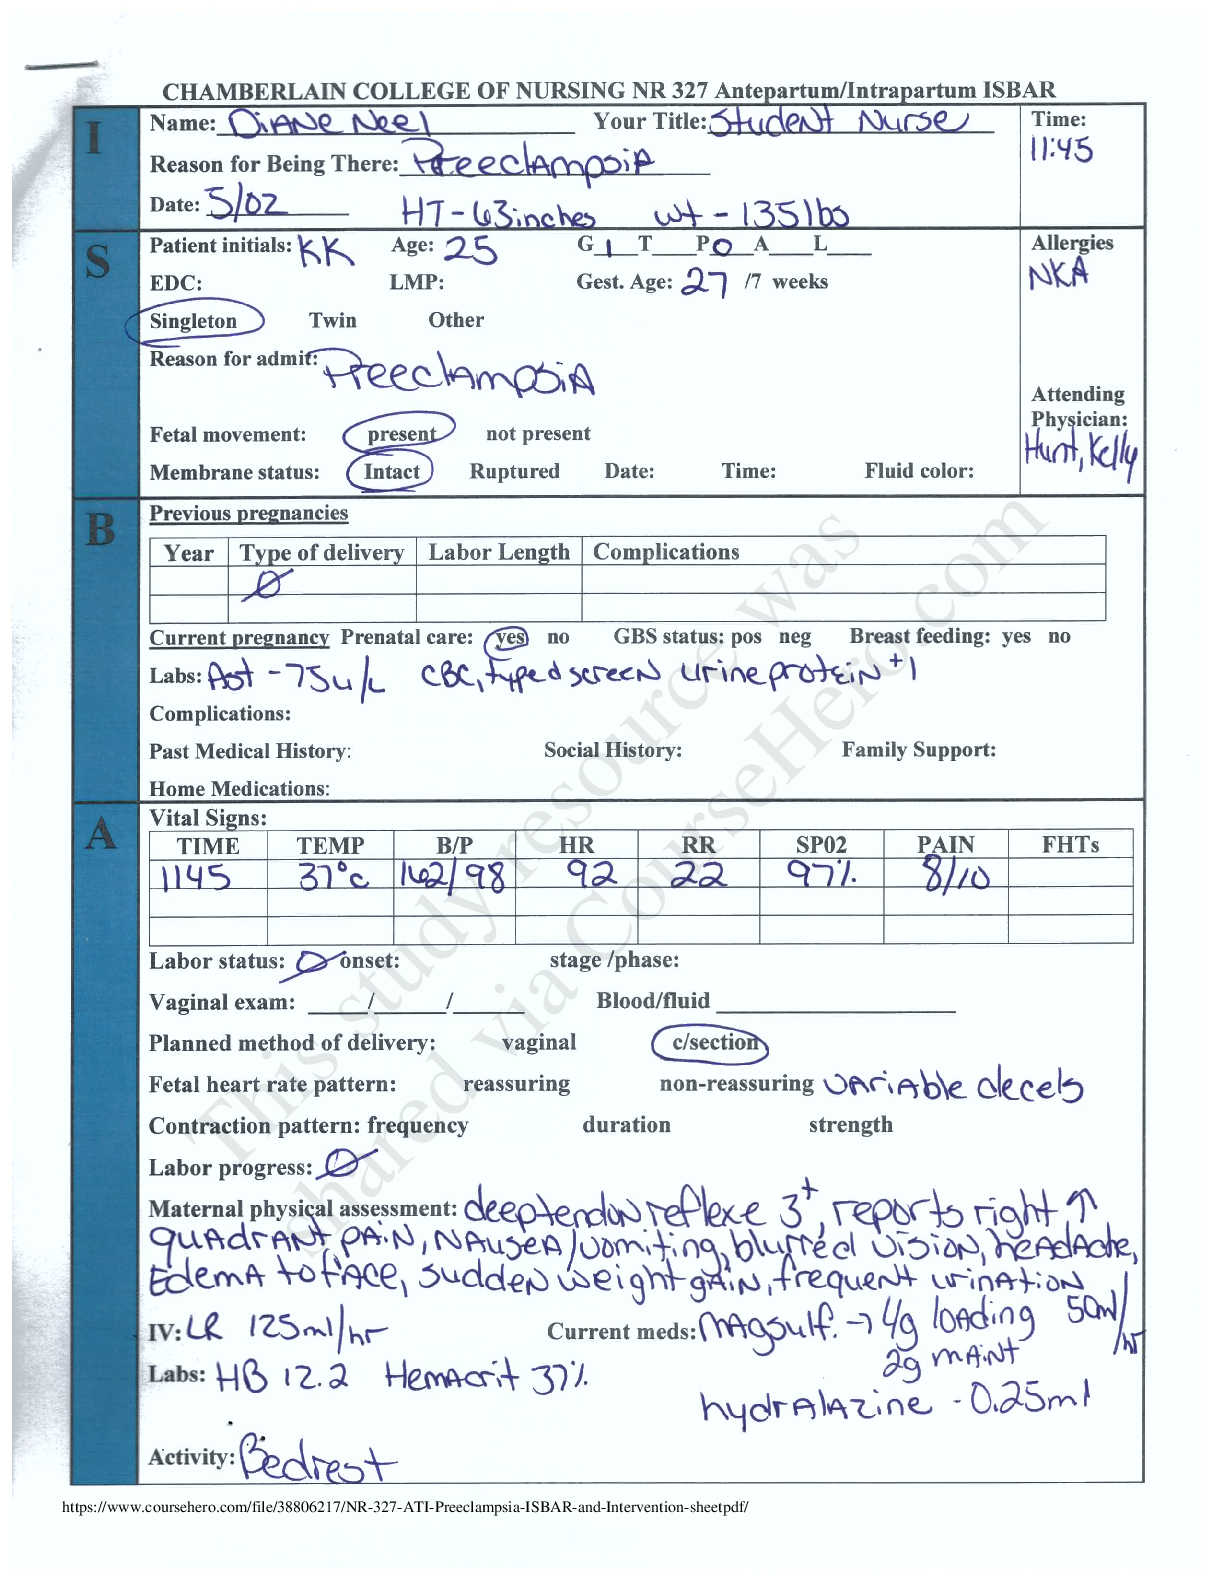 CHAMBERLAIN COLLEGE OF NURSING NR 327 Antepartum/Intrapartum ISBAR
I
Name: Diane Neel Your Title: Student Nurse Time:
Reason for Being There: Preeclampsia 11:45
Date: 5/02 HT - 63inches wt - 135lbs
S
Patient initials: KK Age: 25 G 1 T___ P 0 A___ L___ Allergies
EDC: LMP: Gest. Age: 27 /7 weeks NKA
Singleton Twin Other
Reason for admit: Preeclampsia
Attending
Physician:
Fetal movement: present not present Hunt, Kelly
Membrane status: Intact Ruptured Date: Time: Fluid color:
B
Previous pregnancies
Year Type of delivery Labor Length Complications
Ø
Current pregnancy Prenatal care: yes no GBS status: pos neg Breast feeding: yes no
Labs: Ast - 75u/L CBC, typed screen urine protein +1
Complications:
Past Medical History: Social History: Family Support:
Home Medications:
A
Vital Signs:
TIME TEMP B/P HR RR SP02 PAIN FHTs
1145 37°c 162/98 92 22 97% 8/10
Labor status: Ø onset: stage /phase:
Vaginal exam: _____/_____/_____ Blood/fluid ________
Planned method of delivery: vaginal c/section
Fetal heart rate pattern: reassuring non-reassuring variable decels
Contraction pattern: frequency duration strength
Labor progress: Ø
Maternal physical assessment: deeptendon reflexe 3+, reports right ↑
quadrant pain, nausea/vomiting, blurred vision, headache,
Edema to face, sudden weight gain, frequent urination
IV: LR 125ml/hr Current meds: magsulf. → 4g loading 50ml/hr
2g maint
Labs: HB 12.2 Hemacrit 37%
hydralazine - 0.25ml
Activity: Bedrest
This study resource was
shared via CourseHero.com
https://www.coursehero.com/file/38806217/NR-327-ATI-Preeclampsia-ISBAR-and-Intervention-sheetpdf/